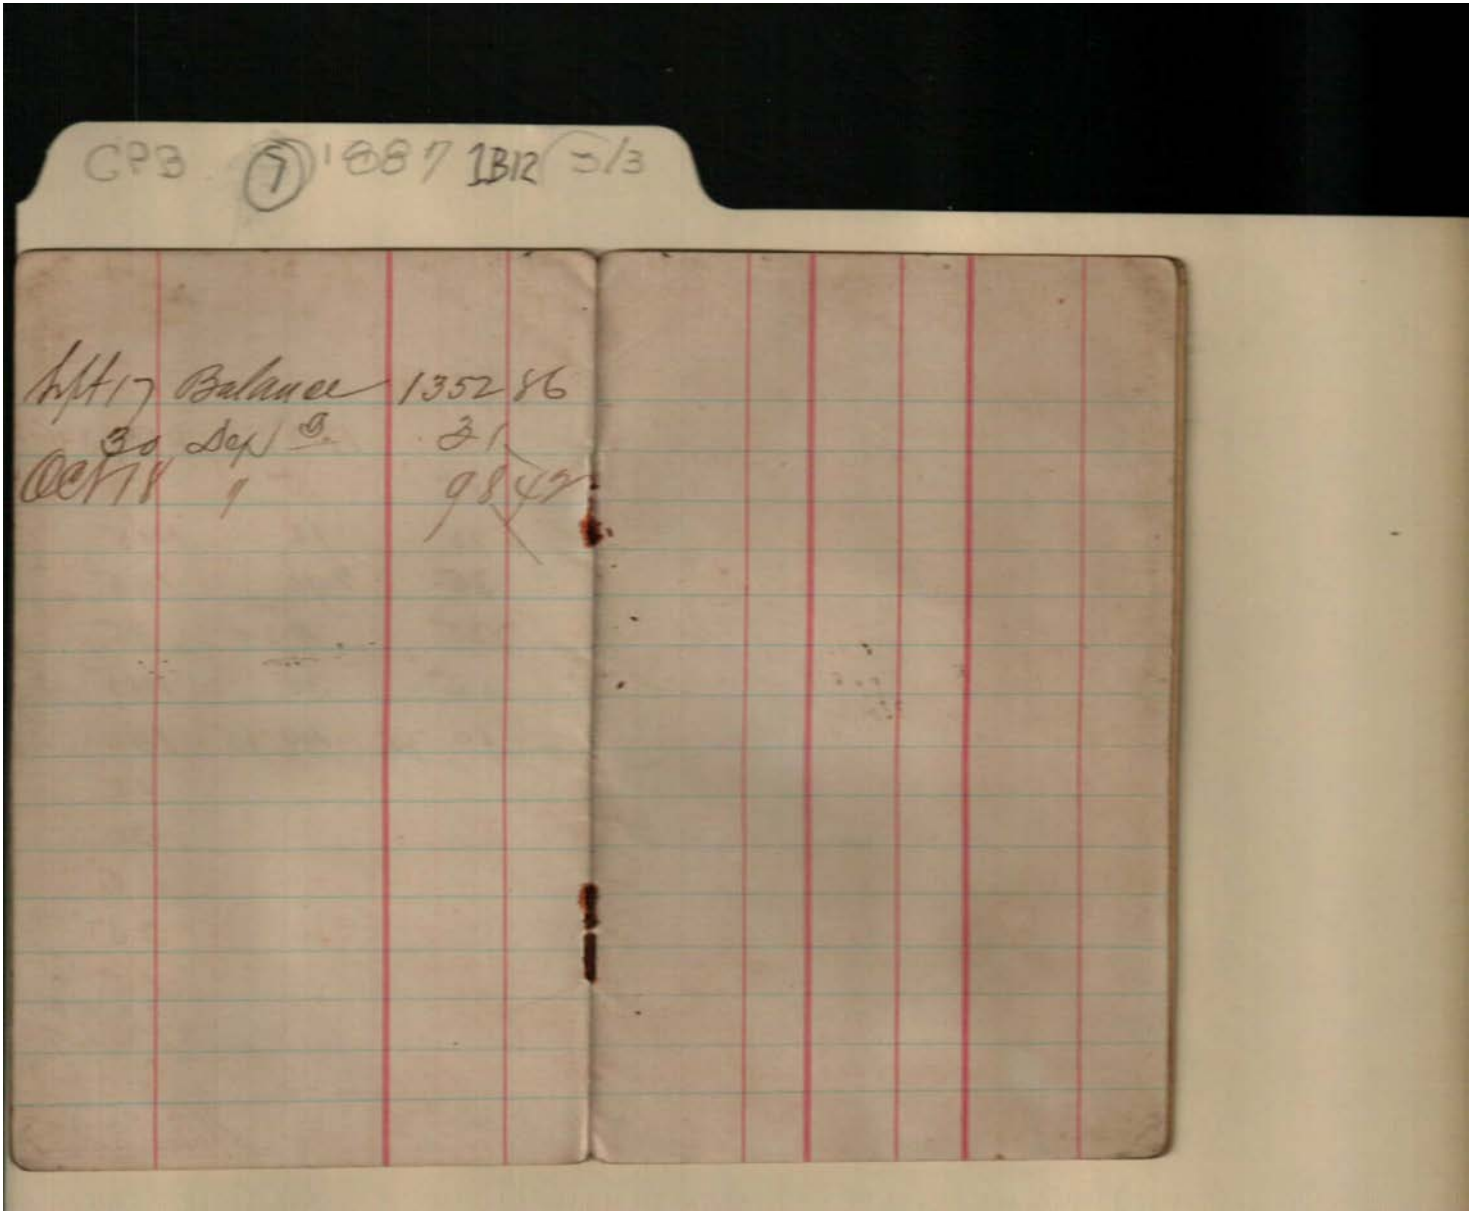 CPB 7 1887 1B12 3/3
Sept 17 Balance 1352 86
30 Dep 31
Oct 18 " 98 42